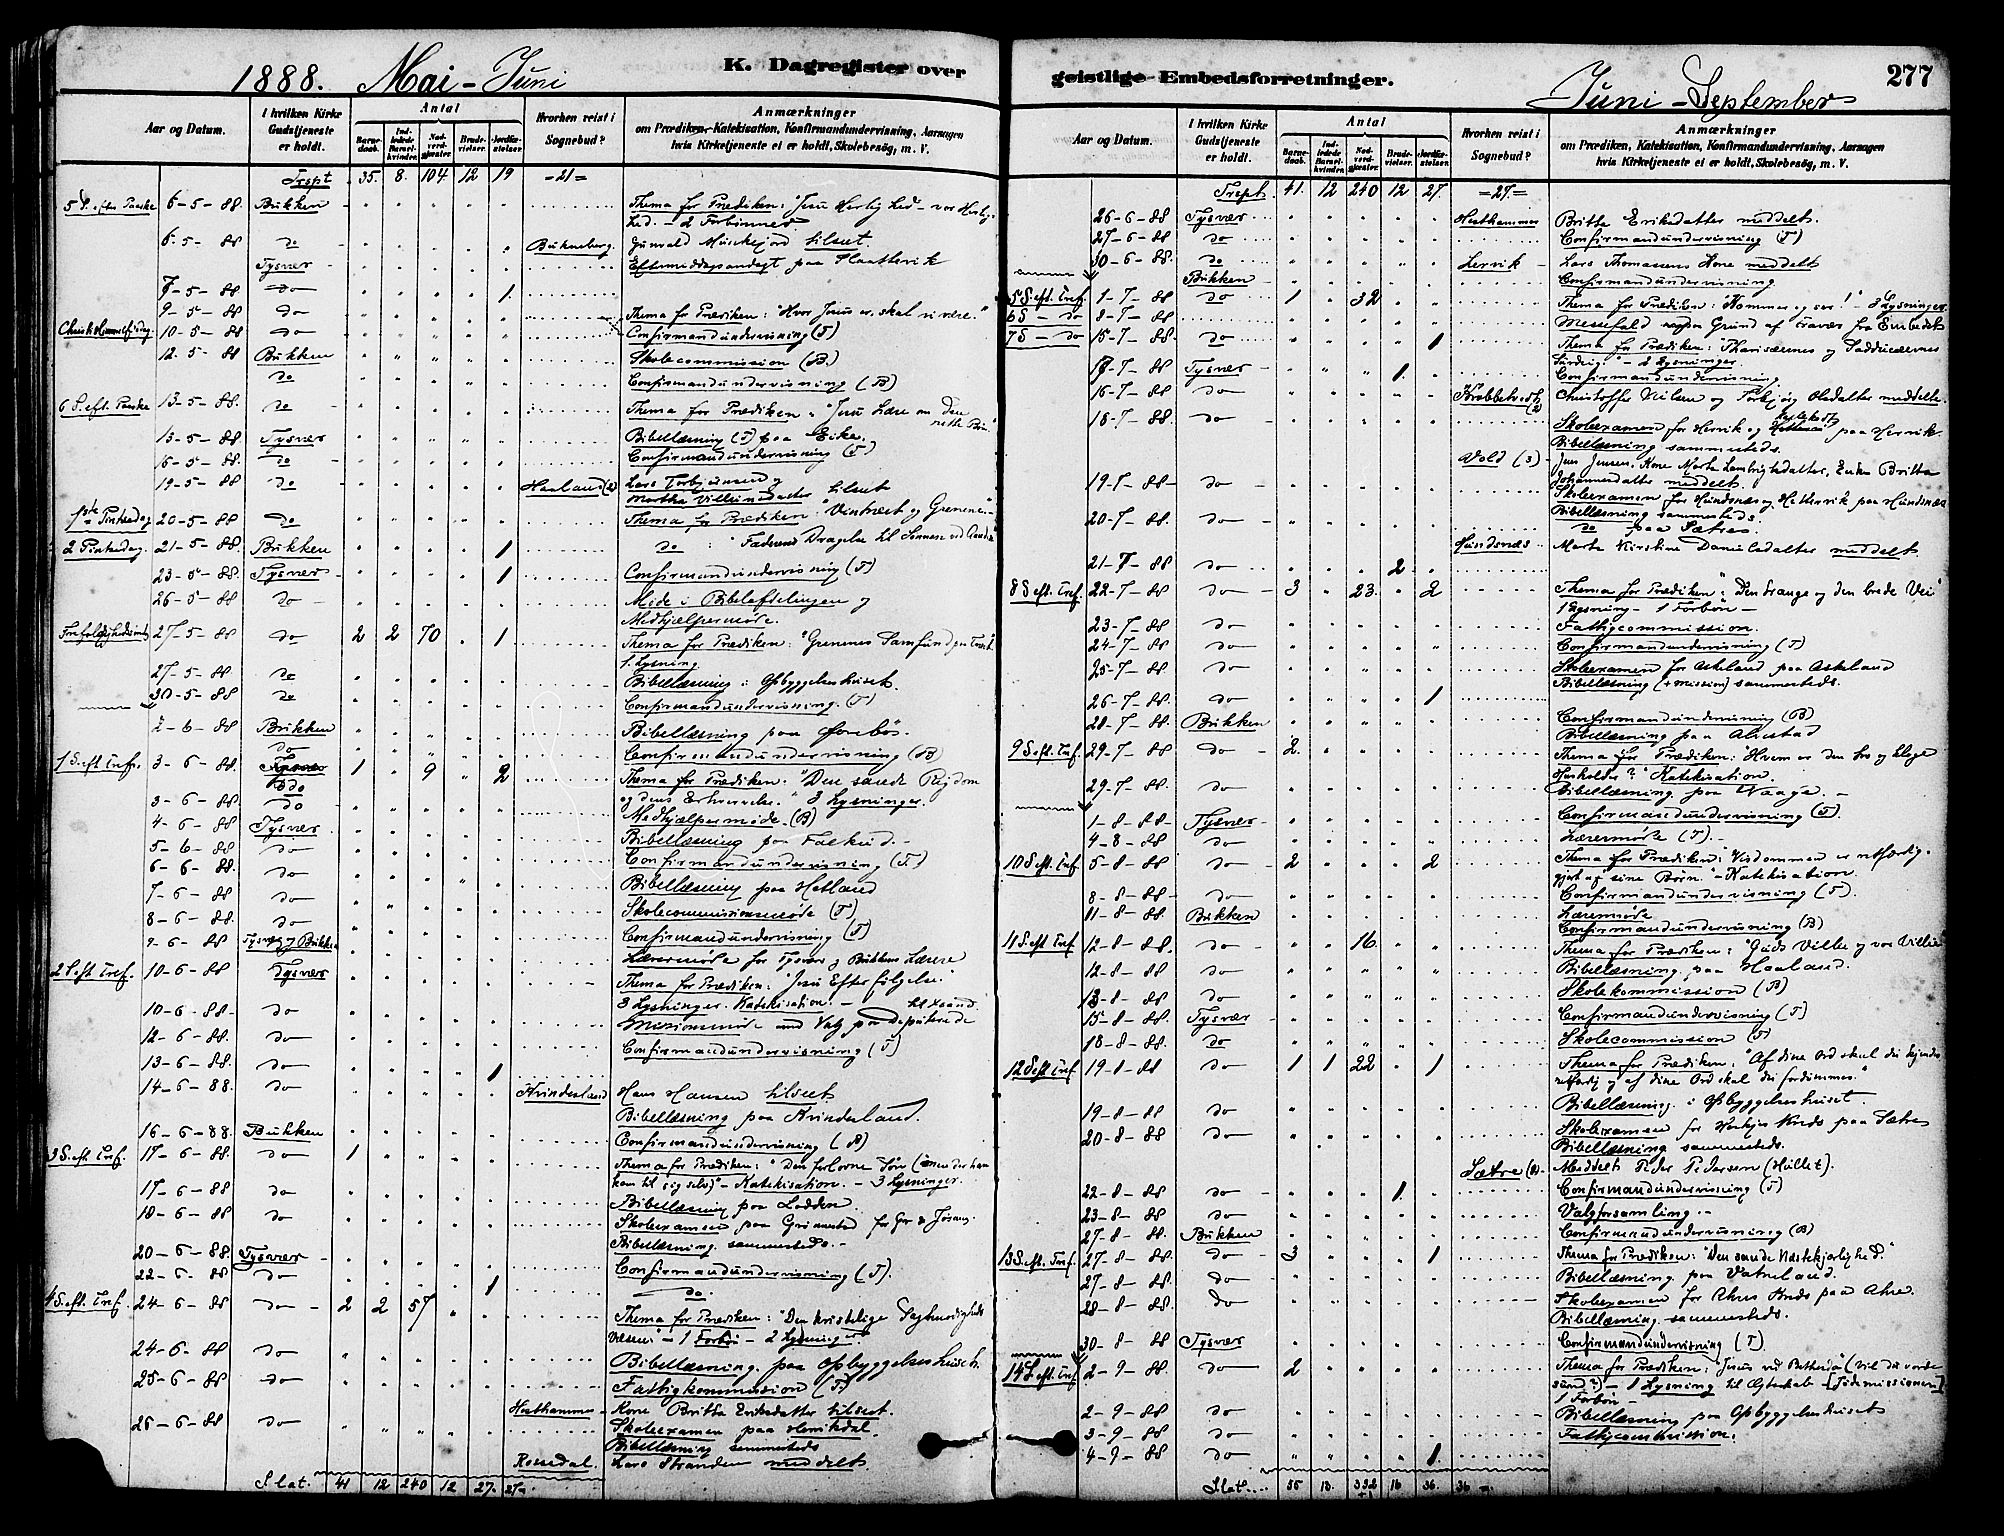 1888. Mai - Juni
K. Dagregister over
Aar og Datum.
I hvilken Kirke Gudstjeneste er holdt.
Antal
Barnedaab.
Indledede Barselkvinder.
Nadverdgjæster.
Brudevielser.
Jordfæstelser.
Hvorhen reist i Sognebud?
Anmærkninger
om Prædiken, Katekisation, Konfirmandundervisning, Aarsagen
hvis Kirketjeneste ei er holdt, Skolebesøg, m. V.
Trspt 35. 8. 104 12 19 =21=
6-5-88 Bukken Thema for Prædiken: "Jesu Herlighed - vor Herlighed. - 2 Forbønner
6-5-88 do Gunvald tilseet.
Tysvær Eftermiddagsandagt paa
7-5-88 do 1.
9-5-88 do Thema for Prædiken: "Hvor Jesus er, skal vi være."
10-5-88 do Confirmandundervisning (T)
12-5-88 Bukken Skolecommission (B)
do Confirmandundervisning (B)
13-5-88. do Thema for Prædiken: "Jesu Lære om den rette Bøn"
13-5-88 Tysvær Bibellæsning (T) paa Eike.
16-5-88. do Confirmandundervisning (T)
19-5-88 do Haaland (2) Lars Torbjørnsen og
Martha tilseet
20-5-88 do Thema for Prædiken: "Vintræet og Grenene."
2 Pintsedag. 21-5-88 Bukken 1 do : "Faderens Dragelse til Sønnen
23-5-88. Tysvær 1 Confirmandundervisning (T)
26-5-88 do Møde i Bibelafdelingen og
Medhjælpermøde.
27-5-88 do 2 2 70 1 Thema for Prædiken: "Grenenes Samfund
1. Lysning
27-5-88 do Bibellæsning i Opbyggelseshuset.
30-5-88 do Confirmandundervisning. (T)
2-6-88 Bukken Bibellæsning paa
do Confirmandundervisning (B)
1 S. eft. Tref. 3-6-88. do 1 9 2 Thema for Prædiken: "Den sande Rigdom
og dens Erhvervelse." 3 Lysninger.
3-6-88 do Medhjælpermøde. (B)
4-6-88 Tysvær Bibellæsning paa Falkeid.
5-6-88 do Confirmandundervisning (T)
6-6-88. do Bibellæsning paa Hetland
7-6-88 do Skolecommissionsmøde (T)
8-6-88. do Confirmandundervisning (T)
9-6-88 Tysvær og Bukken Lærermøde for Tysvær og Bukkens Lærere
2 S. eft. Tref. 10-6-88 Tysvær Thema for Prædiken: "Jesu Efterfølgelse."
3 Lysninger. Katekisation.
10-6-88 do Missionsmøde med Valg paa Deputerede
12-6-88 do Confirmandundervisning (T)
13-6-88. do 1
14-6-88. do Kvindesland Hans Hansen tilseet
Bibellæsning paa Kvindesland.
16-6-88. Bukken Confirmandundervisning (B)
3 S. eft. Tref. 17-6-88. do 1 Thema for Prædiken: "Den forlorne Søn
kom til sig selv)" - Katekisation. - 3 Lysninger.
17-6-88 do Bibellæsning paa Lodden.
18-6-88 do Skoleexamen paa
Bibellæsning sammesteds.
20-6-88 Tysvær Confirmandundervisning (T).
22-6-88 do 1 do
4 S. eft. Tref. 24-6-88 do 2 2 57 Thema for Prædiken: "Den kristelige
Væsen." - 1 Forbøn - 2 Lysninger
24-6-88 do Bibellæsning paa Opbyggelseshuset.
25-6-88 do Fattigkommission (T)
Hesthammer Kone Britta Eriksdatter tilseet.
26-6-88 do Skoleexamen paa
Bibellæsning sammesteds
Rossedal Lars Stranden meddelt
Slat. 41 12 240 12 27. 27
geistlige Embedsforretninger.
Juni - September
277
Aar og Datum.
I hvilken Kirke Gudstjeneste er holdt.
Antal
Barnedaab.
Indledede Barselkvinder.
Nadverdgjæster.
Brudevielser.
Jordfæstelser.
Hvorhen reist i Sognebud?
Anmærkninger
om Prædiken, Katekisation, Konfirmandundervisning, Aarsagen
hvis Kirketjeneste ei er holdt, Skolebesøg, m. V.
Trspt 41. 12 240 12 27. =27=
26-6-88 Tysvær Hesthammer Britta Eriksdatter meddelt.
27-6-88 do Confirmandundervisning (T)
30-6-88. do Lervik Lars Thomassens Kone meddelt
Bukken Confirmandundervisning.
5 S. eft. Tref. 1-7-88 do 1 32 Thema for Prædiken: "Kommer og ser!" - Lysninger
6 S - do 8-7-88 Messefald paa Grund af Fravær fra Embedet
7 S - do 15-7-88. do 1 Thema for Prædiken: "Pharisæernes og Sadducæernes
Surdeig" - 2 Lysninger
17-7-88 Tysvær 1. Confirmandundervisning.
16-7-88 do Christoffer Nilsen og Torbjørg Oledatter meddelte.
18-7-88 do Skoleexamen for Hervik og paa Hervik
Bibellæsning sammesteds.
Vold (3) Jens Jensen, Kone Marta Lambrigtsdatter, Enken Britta
Johannesdatter meddelt
19-7-88 do Skoleexamen for Hundsnæs og Hettervik paa Hundsnæs
Bibellæsning sammesteds.
20-7-88. do do paa Sætres
Hundsnæs Marta Kirstine Danielsdatter meddelt
21-7-88 do 2
8 S. eft. Tref. 22-7-88 do 3 23. 2 Thema for Prædiken: "Den trange og den brede Vei"
1 Lysning - 1 Forbøn -
23-7-88 do Fattigcommission.
24-7-88 do Confirmandundervisning (T)
25-7-88 do Skoleexamen for Askeland paa Askeland
Bibellæsning (+ mission) sammesteds.
26-7-88 do 1
28-7-88 Bukken Confirmandundervisning (B)
Bibellæsning paa
9 S. eft. Tref. 29-7-88 do 2. Thema for Prædiken: "Hvem er den tro og kloge
Husholder?" Katekisation.
29-7-88. do Bibellæsning paa Vaage.
1-8-88 Tysvær Confirmandundervisning (T).
4-8-88 do Lærermøde (T).
10 S. eft. Tref. 5-8-88 do 2 2 Thema for Prædiken: "Visdommen er retfærdiggjort af sine Børn." - Katekisation.
8-8-88 do Confirmandundervisning (T).
11-8-88. Bukken Lærermøde
Confirmandundervisning (B)
11 S. eft. Tref. 12-8-88 do 16. Thema for Prædiken: "Guds Villie og vor Villie
12-8-88 do Bibellæsning paa Haaland.
13-8-88 do Skolekommission (B)
15-8-88. Tysvær Confirmandundervisning (T)
18-8-88. do Skolecommission (T)
12 S. eft. Tref. 19-8-88 do 1 1 22 1 Thema for Prædiken: "Af dine Ord skal du kjendes
retfærdig og af dine Ord skal du fordømmes."
19-8-88 do Bibellæsning i Opbyggelseshuset.
20-8-88 do Skoleexamen for Kreds paa Sætre
Bibellæsning sammesteds.
Sætre Meddelt Peder Pedersen
22-8-88. do 1. Confirmandundervisning (T)
23-8-88. do Valgforsamling.
27-8-88. Bukken Confirmandundervisning (B)
13 S. eft. Tref. 27-8-88. do 3 1 Thema for Prædiken: "Den sande Næstekjærlighed."
27-8-88 do Bibellæsning paa Vatneland.
28-8-88. do Skoleexamen for Ahres Kreds paa Ahre.
Bibellæsning sammesteds.
30-8-88 Tysvær Confirmandundervisning (T).
14 S. eft. Tref 2-9-88 do 2 Thema for Prædiken: "Jesus ved Bethesda" (Vil du vorde
sund?) - 1 Lysning til Ægteskab - [Jødemissionen]
1 Forbøn
2-9-88 do Bibellæsning paa Opbyggelseshuset
3-9-88 do Fattigcommission.
4-9-88 do 1.
Slat 55 13. 332 16 36. 36